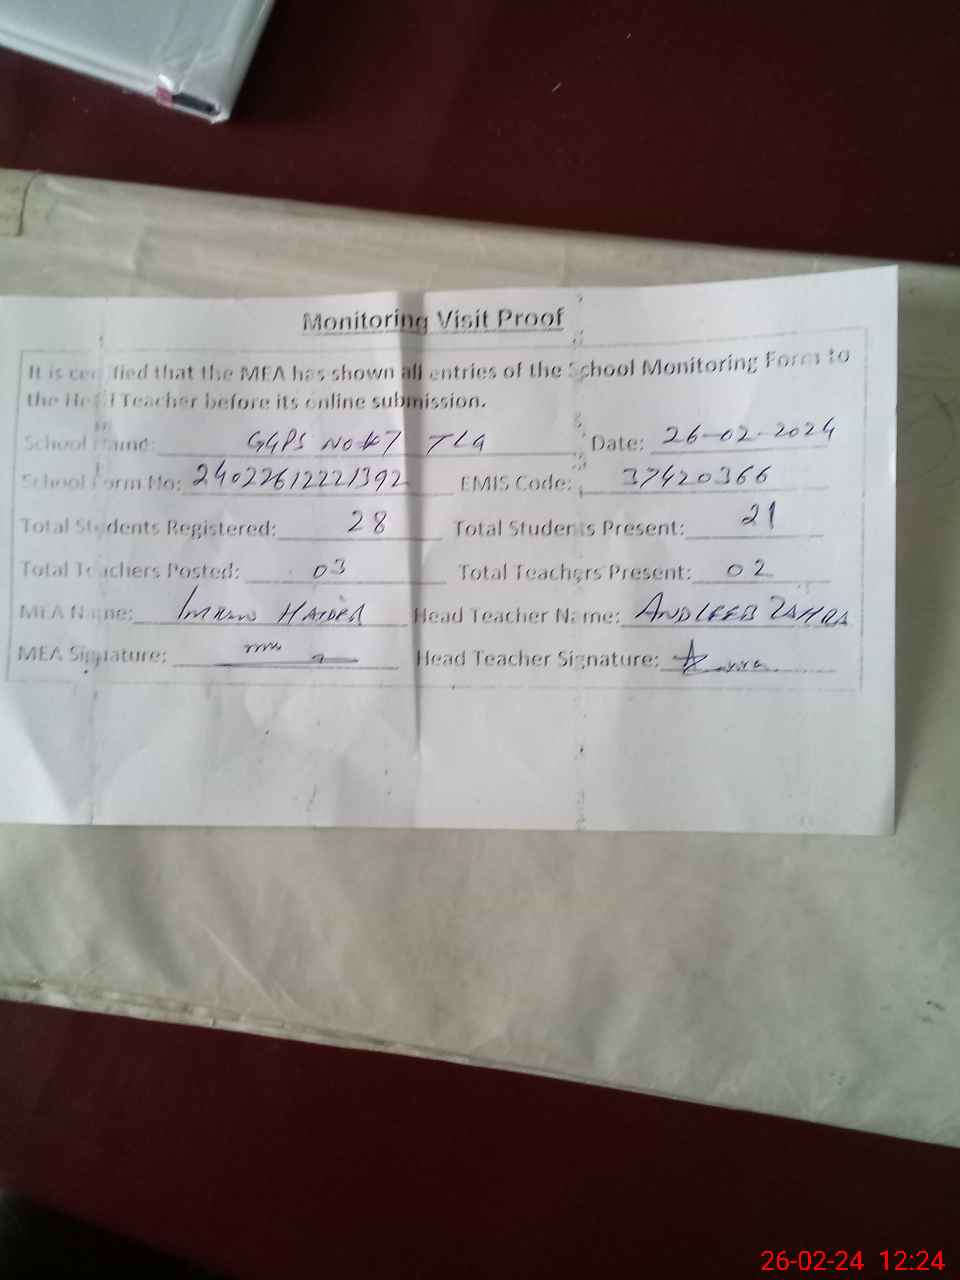 Monitoring Visit Proof
It is certified that the MEA has shown all entries of the School Monitoring Form to
the Head Teacher before its online submission.
School Name: GGPS No #7 TLG Date: 26-02-2024
School Form No: 24022612221392 EMIS Code: 37420366
Total Students Registered: 28 Total Students Present: 21
Total Teachers Posted: 03 Total Teachers Present: 02
MEA Name: IMRAN HAIDER Head Teacher Name: ANDLEEB ZAHRA
MEA Signature: Head Teacher Signature:
26-02-24 12:24